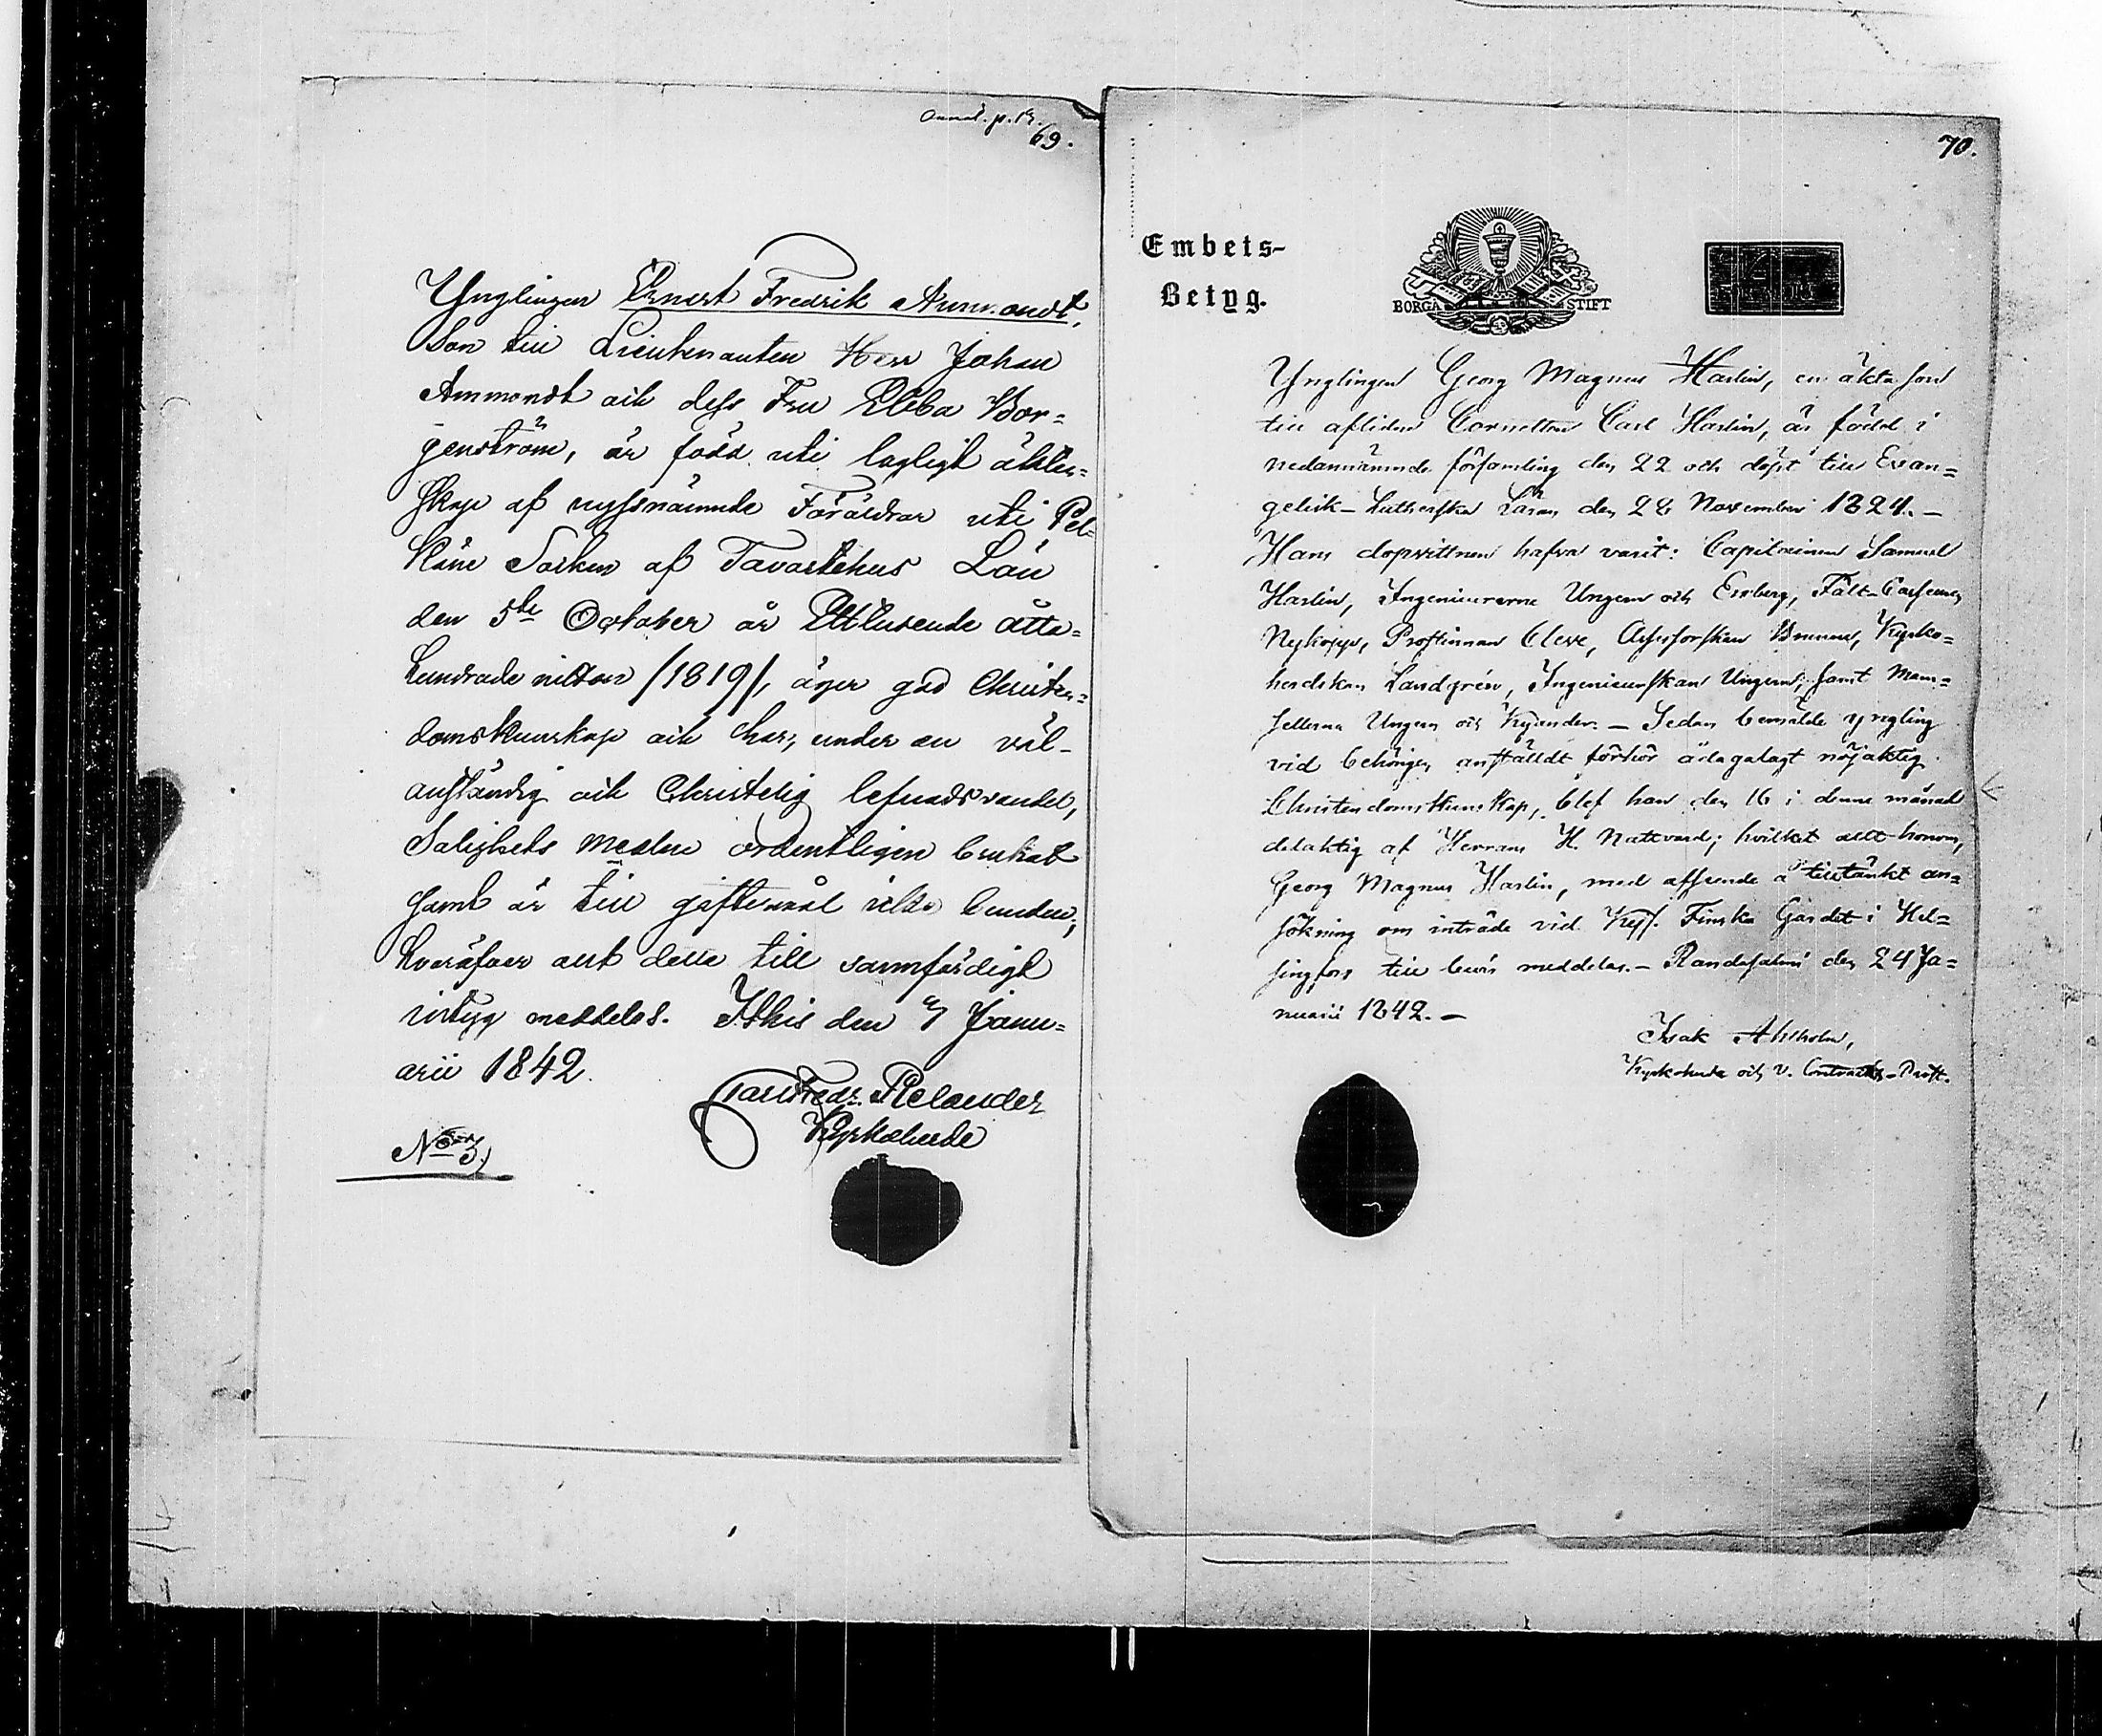 69.
Ynglingen Ernst Fredrik Ammondt,
Son till Lieutenanten Herr Johan
Ammondt och dess Fru Ebba Bor=
genström, är född uti lagligt äkten-
skap af nyssnämnde Föräldrar uti Pel-
käne Socken af Tavastehus Län
den 5te October år Ettusende åtta=
hundrade nitton /1819/, äger god Christen=
domskunskap och har, under en väl-
anständig och Christelig lefnadsvandel,
Salighets medlen ordentligen brukat
samt är till giftermål icke bunden;
hvaröfver allt detta till sannfärdigt
vittyg meddelas. Ithis den 7 Janu=
arii 1842.
Carl Fredr. Relander
Kyrkoherde
No 3,
70.
Embets-
Betyg.
BORGÅ STIFT
Ynglingen Georg Magnus Harlin, en äkta son
till aflidne Cornetten Carl Harlin, är född i
nedannämnde församling den 22 och döpt till Evan=
gelisk-Lutherska Läran den 28 November 1824. –
Hans dopvittnen hafva varit: Capitainen Samuel
Harlin, Ingenieurerne Ungern och Enberg, Fält-Casseuren
Nykopp, Prostinnan Cleve, Assessorskan Brunou, Kyrko=
herdskan Landgrén, Ingenieurskan Ungern, samt Mam=
sellerna Ungern och Kyander. – Sedan bemälde yngling
vid behörigen anställdt förhör ådagalagt nöjaktig
Christendomskunskap, blef han den 16 i denne månad
delaktig af Herrans H. Nattvard; hvilket allt honom,
Georg Magnus Harlin, med afseende å tilltänkt an=
sökning om inträde vid Kejs. Finska Gardet i Hel=
singfors till bevis meddelas. – Randasalmi den 24 Ja=
nuarii 1842. –
Isak Ahlholm,
Kyrkoherde och v. Contracts-Prost.